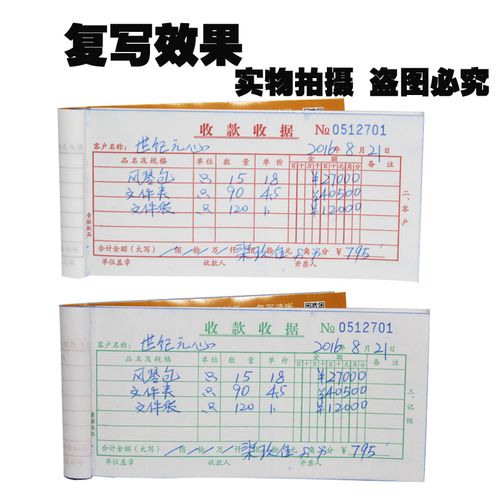 复写效果
实物拍摄 盗图必究
收款收据 № 0512701
客户名称: 世纪元心 2016年8月21日
品名及规格 单位 数量 单价 金额 备注
百十万千百十元角分
风琴包 只 15 18 ¥27000
文件夹 只 90 4.5 ¥40500
文件袋 只 120 1 ¥12000
合计金额(大写) 佰 拾 万 仟 柒佰 玖拾 伍元 角 分 ¥ 795
单位盖章 收款人 开票人
二、客户
收款收据 № 0512701
客户名称: 世纪元心 2016年8月21日
品名及规格 单位 数量 单价 金额 备注
百十万千百十元角分
风琴包 只 15 18 ¥27000
文件夹 只 90 4.5 ¥40500
文件袋 只 120 1 ¥12000
合计金额(大写) 佰 拾 万 仟 柒佰 玖拾 伍元 角 分 ¥ 795
单位盖章 收款人 开票人
三、记帐